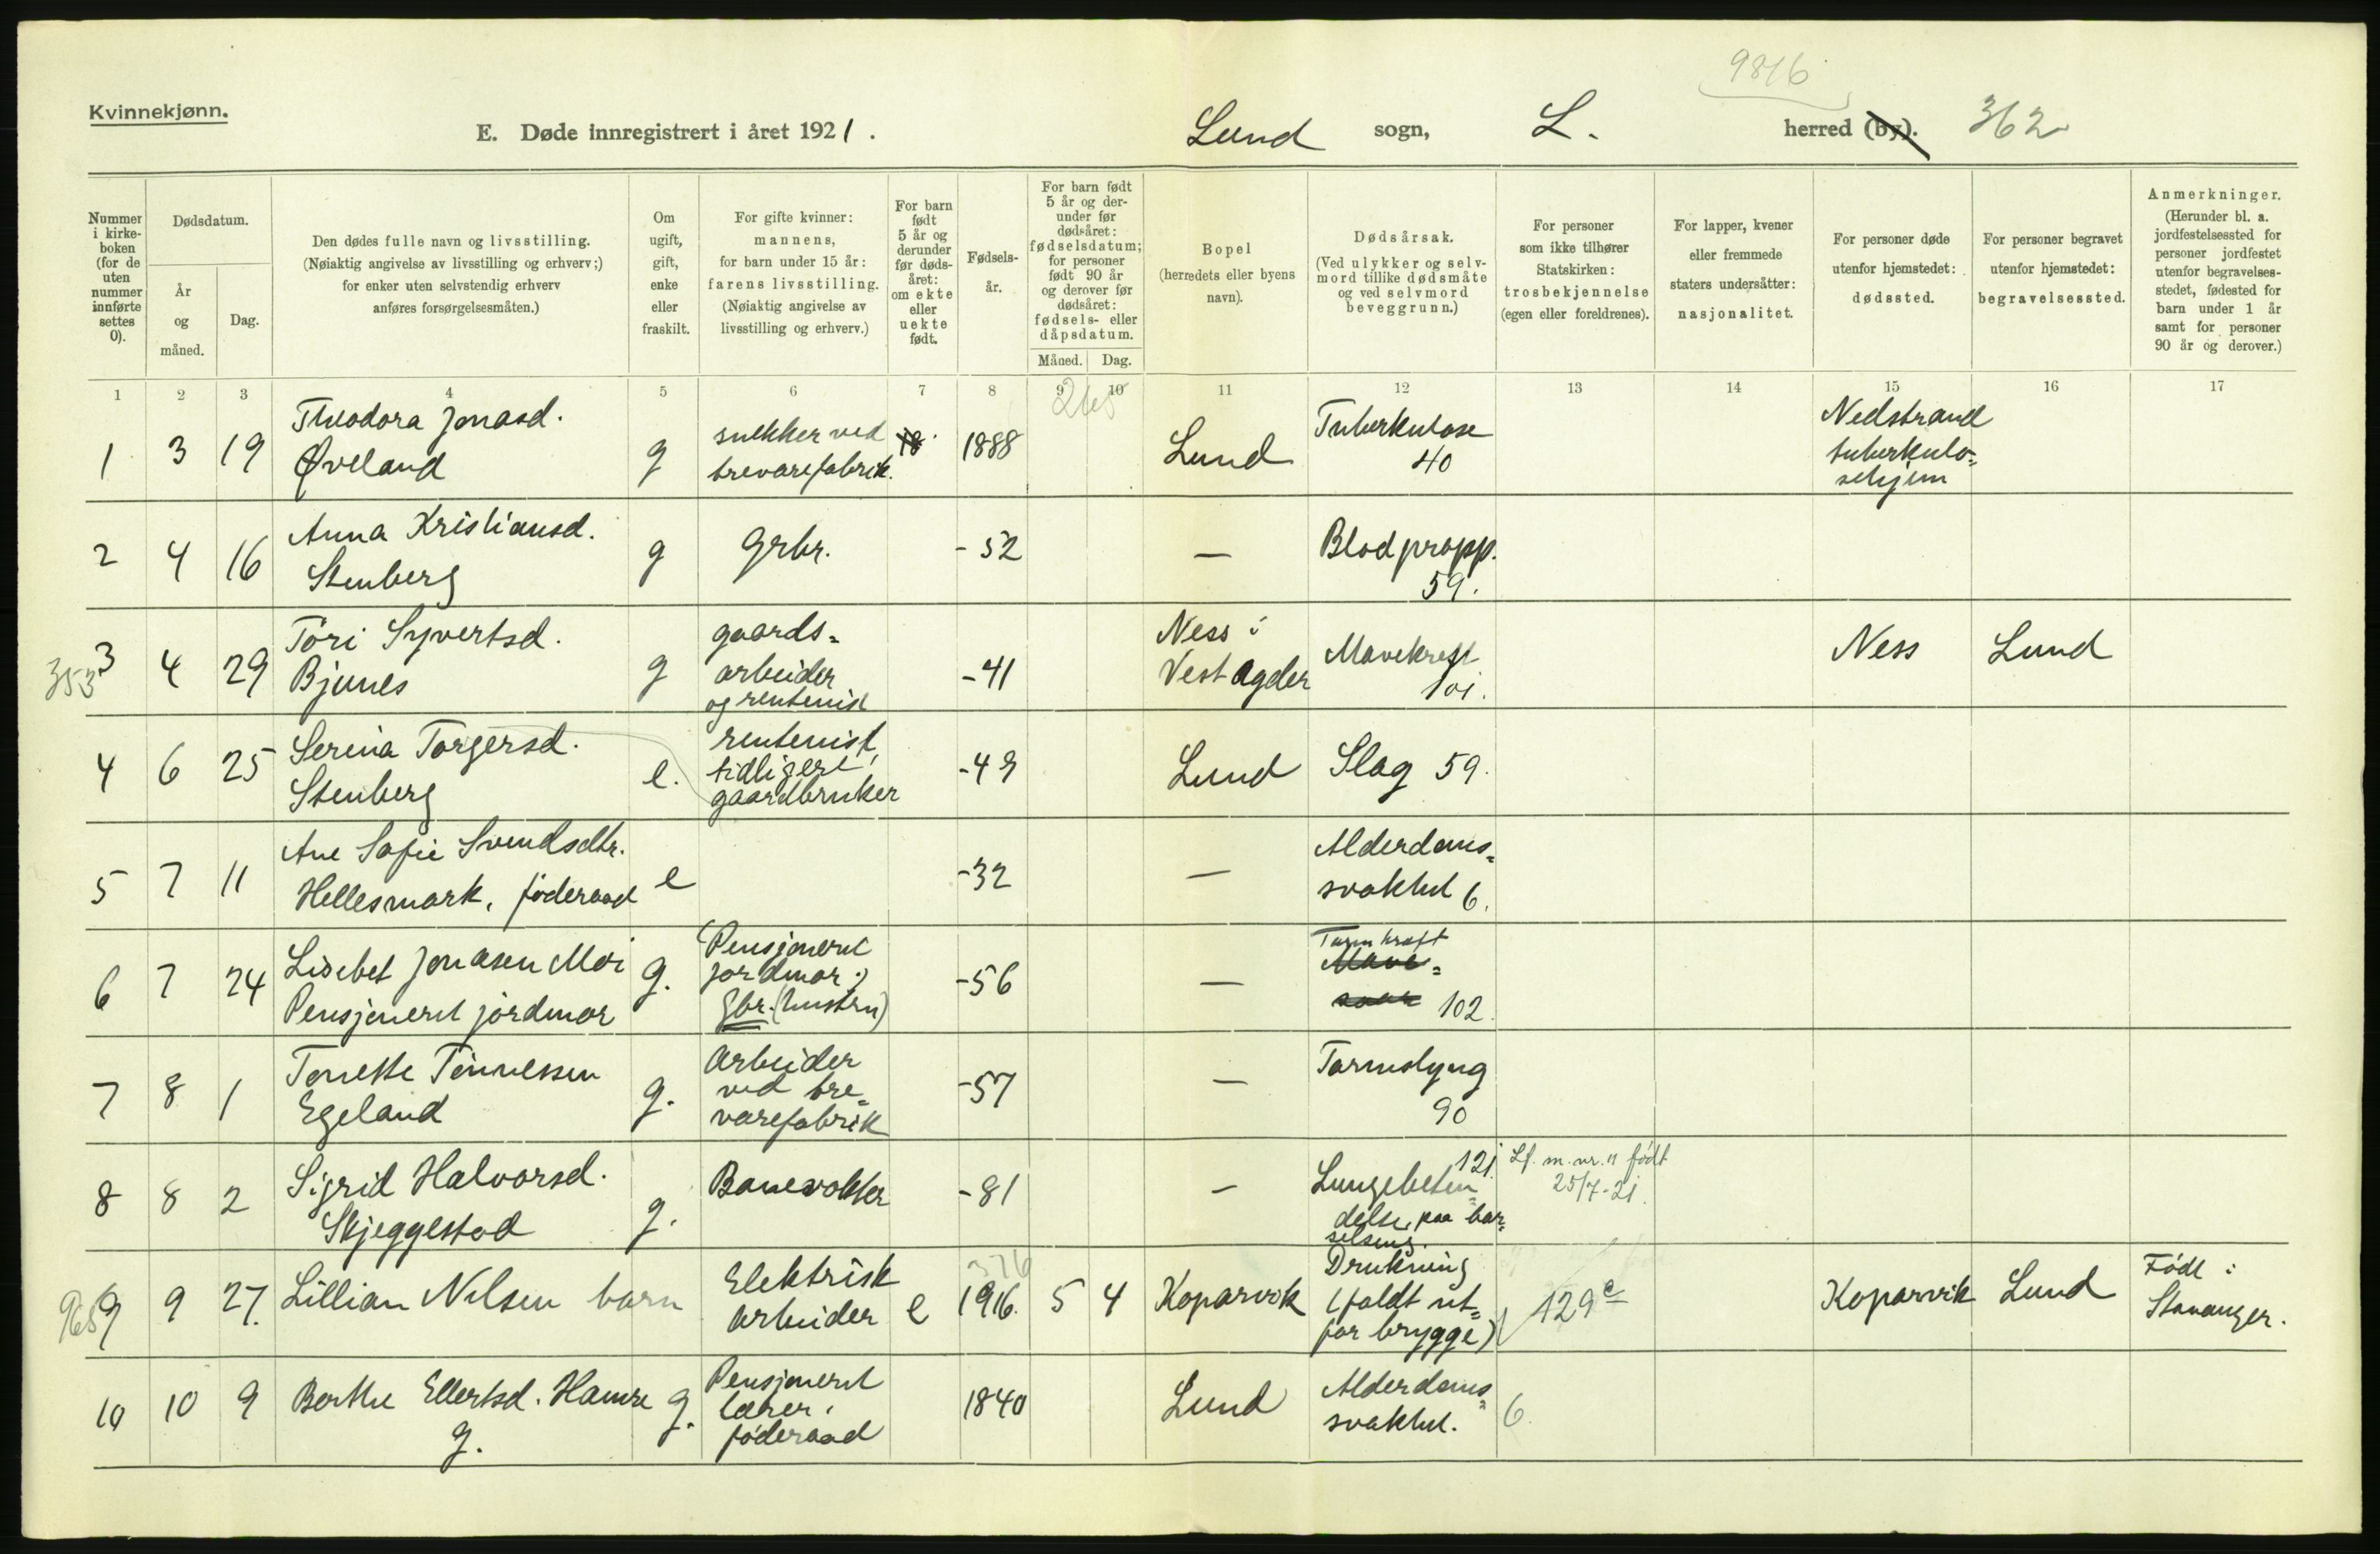 9816
Kvinnekjønn.
E. Døde innregistrert i året 1921.
Lund sogn, L. herred (by). 362
Nummer i kirke-boken (for de uten nummer innførte settes 0).
Dødsdatum.
År og måned.
Dag.
Den dødes fulle navn og livsstilling.
(Nøiaktig angivelse av livsstilling og erhverv;)
for enker uten selvstendig erhverv
anføres forsørgelsesmåten.)
Om ugift, gift, enke eller fraskilt.
For gifte kvinner:
mannens,
for barn under 15 år:
farens livsstilling.
(Nøiaktig angivelse av
livsstilling og erhverv.)
For barn født 5 år og derunder før døds-året: om ekte eller uekte født.
Fødsels-år.
For barn født 5 år og der-under før dødsåret: fødselsdatum; for personer født 90 år og derover før dødsåret: fødsels- eller dåpsdatum.
Måned. Dag.
Bopel
(herredets eller byens
navn).
Dødsårsak.
(Ved ulykker og selv-
mord tillike dødsmåte
og ved selvmord
beveggrunn.)
For personer
som ikke tilhører
Statskirken:
trosbekjennelse
(egen eller foreldrenes).
For lapper, kvener
eller fremmede
staters undersåtter:
nasjonalitet.
For personer døde
utenfor hjemstedet:
dødssted.
For personer begravet
utenfor hjemstedet:
begravelsessted.
Anmerkninger.
(Herunder bl. a.
jordfestelsessted for
personer jordfestet
utenfor begravelses-
stedet, fødested for
barn under 1 år
samt for personer
90 år og derover.)
1 2 3 4 5 6 7 8 9 10 11 12 13 14 15 16 17
265
1 3 19 Theodora Jonasd.
Øveland g snekker ved
trevarefabrik. 18 1888 Lund Tuberkulose
40 Nedstrand
tuberkulo=
sehjem
2 4 16 Anna Kristiansd.
Stenberg g Grbr. -52 — Blodpropp.
59.
353 3 4 29 Töri Syvertsd.
Bjunes g gaards=
arbeider
og rentenist -41 Ness i
Vest Agder Mavekreft
101. Ness Lund
4 6 25 Serina Torgersd.
Stenberg e. rentenist,
tidligere
gaardbruker -49 Lund Slag 59.
5 7 11 Ane Sofie Svendsdtr.
Hellesmark, föderaad e -32 — Alderdoms=
svakhet 6.
6 7 24 Lisebet Jonasen Moi
Pensjonert jordmor g. (Pensjonert
jordmor;)
Gbr. (hustru) -56 — Tarmkreft
Mave=
saar 102.
7 8 1 Tonette Tönnessen
Egeland g. Arbeider
ved tre=
varefabrik -57 — Tarmslyng
90
8 8 2 Sigrid Halvorsd.
Skjeggestad g. Banevokter -81 — 121.
Lungebeten=
delse, paa bar=
selseng. Lf. m. nr. 11 født
25/7-21.
965 9 9 27. Lillian Nilsen barn Elektrisk
arbeider e 1916. 5 4 Koparvik Drukning
(faldt ut=
for brygge) 129 c Koparvik Lund Född i
Stavanger.
10 10 9 Berthe Ellertsd. Hamre
g. g. Pensjonert
lærer,
föderaad 1840 Lund Alderdoms=
svakhet. 6.